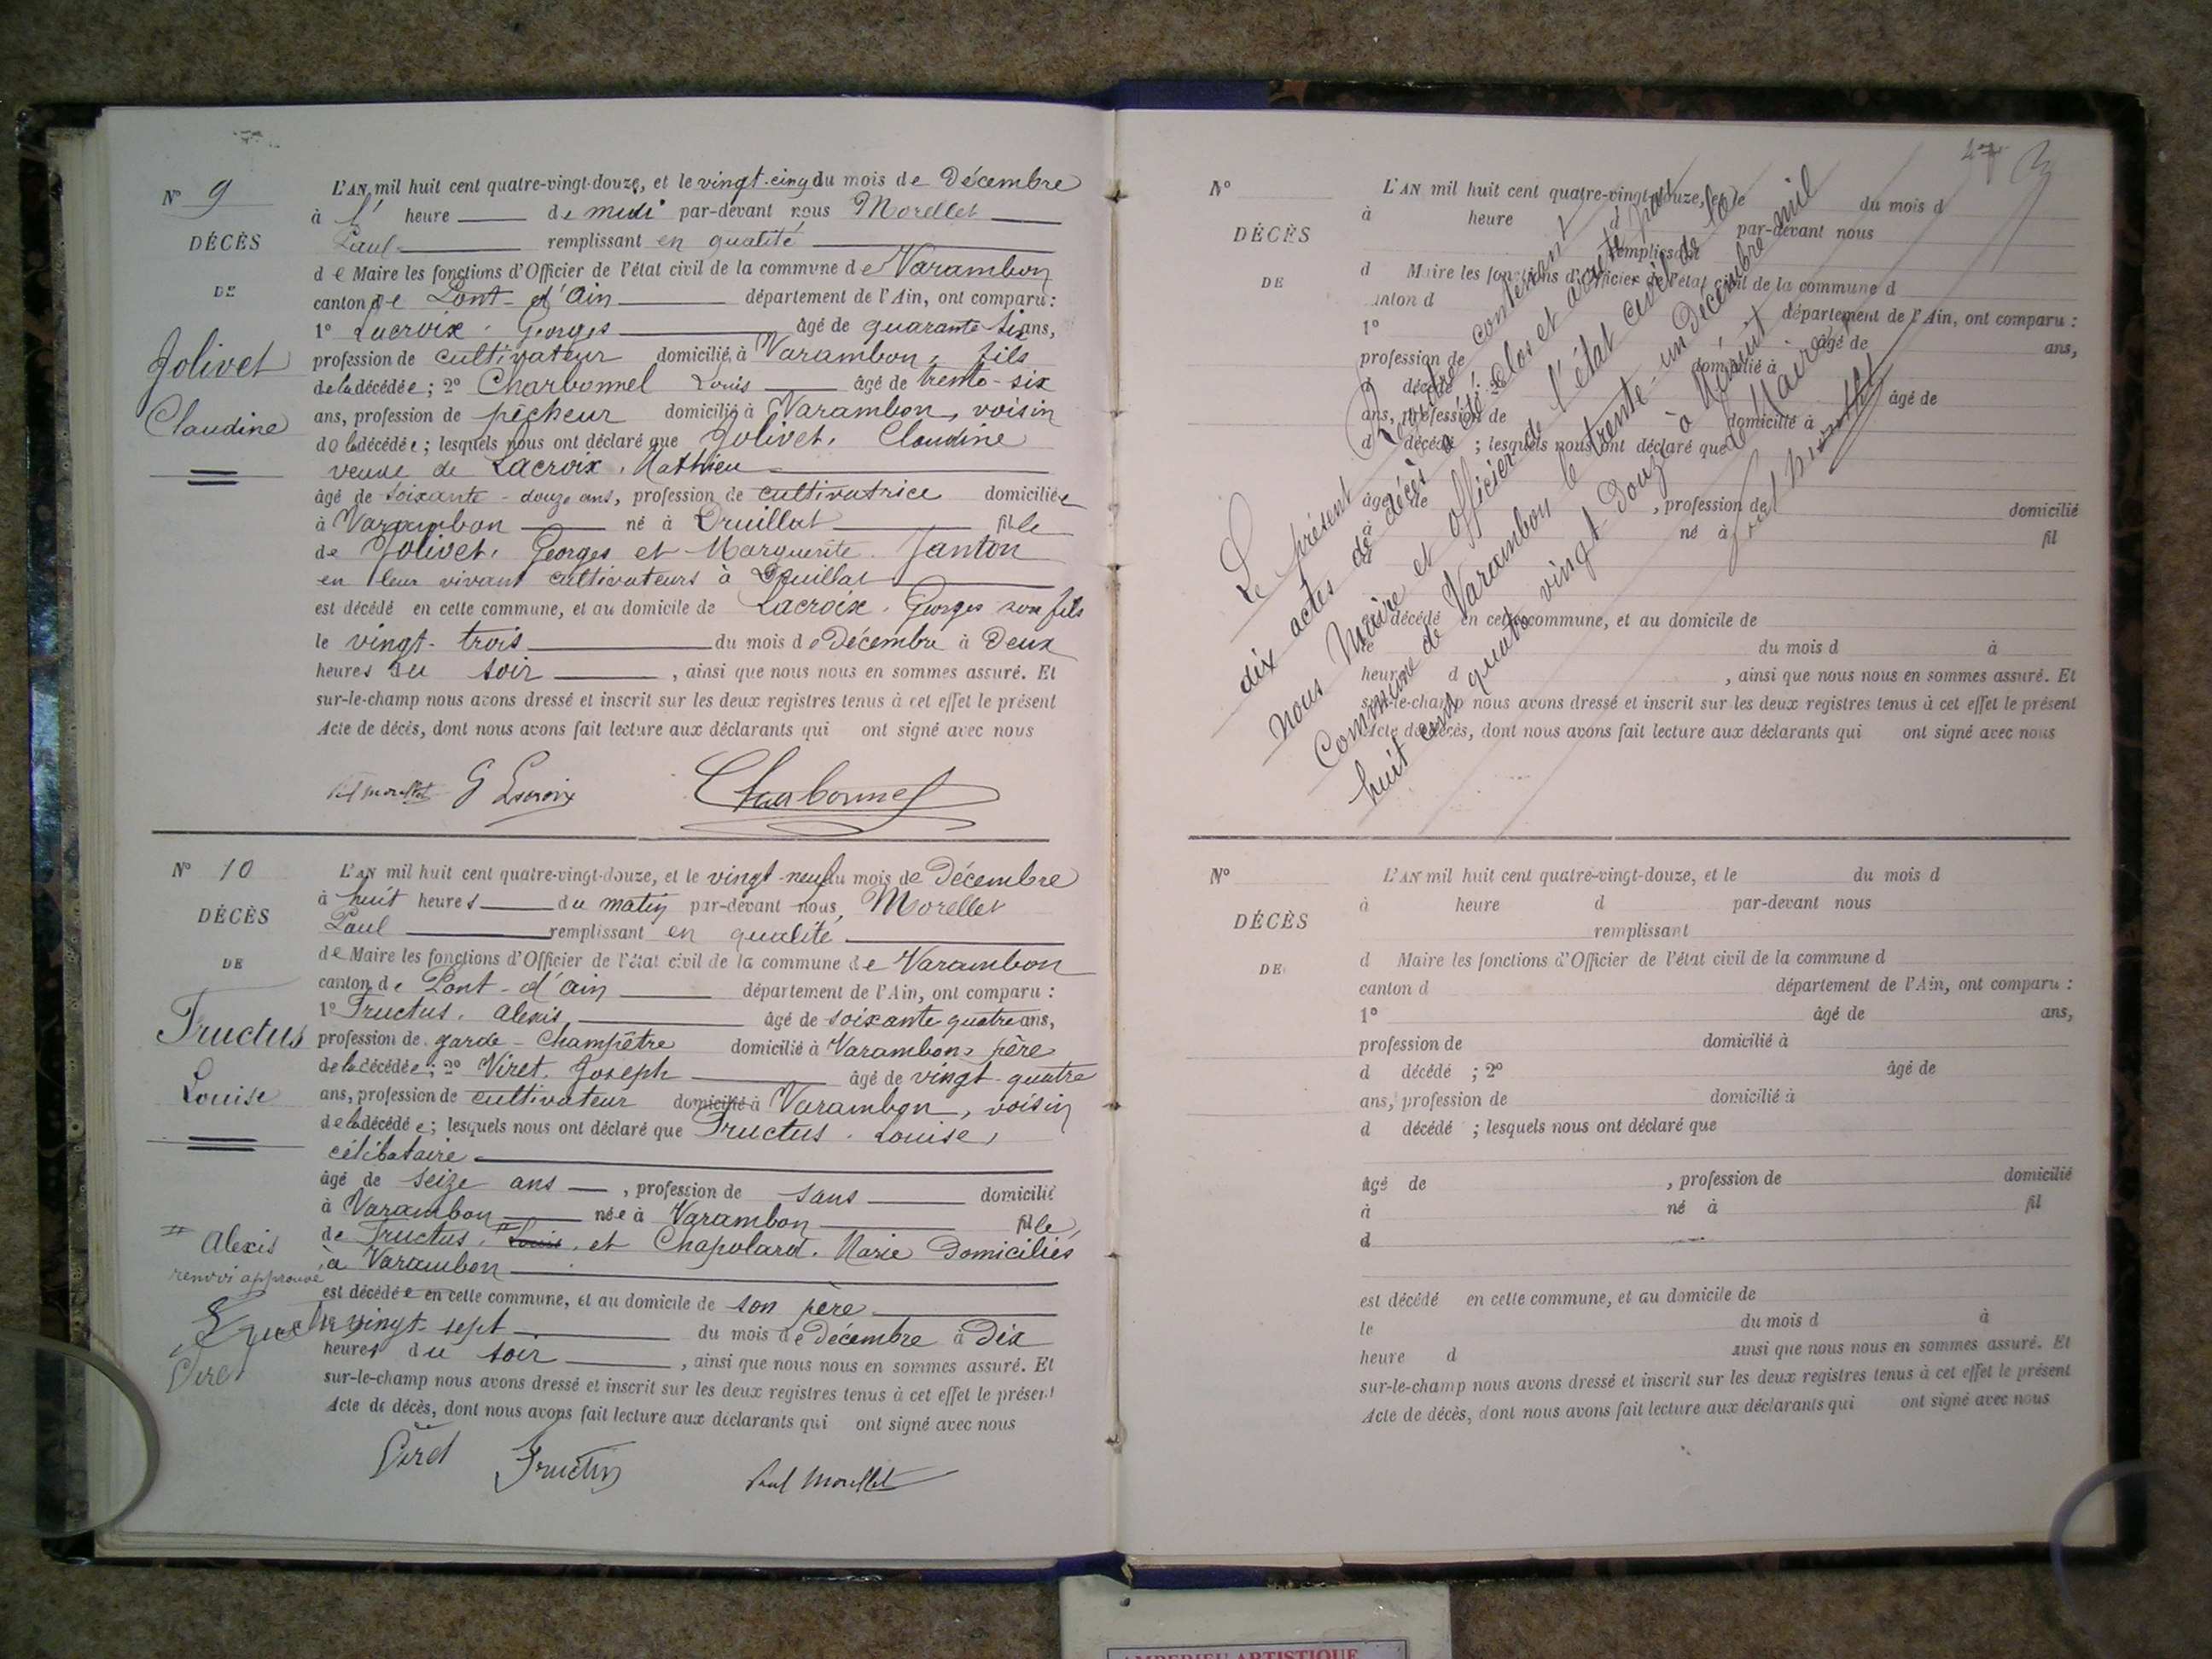 N° 9
DÉCÈS
DE
Jolivet
Claudine
L'AN mil huit cent quatre-vingt-douze, et le vingt-cinq du mois de Décembre
à l' heure de midi par-devant nous Morellet
Paul remplissant en qualité
de Maire les fonctions d'Officier de l'état civil de la commune de Varambon
canton de Pont-d'Ain département de l'Ain, ont comparu :
1° Lacroix Georges âgé de quarante six ans,
profession de cultivateur domicilié à Varambon, fils
de la décédée ; 2° Charbonnel Louis âgé de trente-six
ans, profession de pêcheur domicilié à Varambon, voisin
de la décédée ; lesquels nous ont déclaré que Jolivet, Claudine
veuve de Lacroix, Mathieu
âgé de soixante-douze ans, profession de cultivatrice domiciliée
à Varambon né à Druillat fille
de Jolivet, Georges et Marguerite Janton
en leur vivant cultivateurs à Druillat
est décédé en cette commune, et au domicile de Lacroix, Georges son fils
le vingt-trois du mois de Décembre à Deux
heures du soir , ainsi que nous nous en sommes assuré. Et
sur-le-champ nous avons dressé et inscrit sur les deux registres tenus à cet effet le présent
Acte de décès, dont nous avons fait lecture aux déclarants qui ont signé avec nous
Paul Morellet G Lacroix Charbonnel
N° 10
DÉCÈS
DE
Fructus
Louise
L'AN mil huit cent quatre-vingt-douze, et le vingt-neuf du mois de Décembre
à huit heures du matin par-devant nous, Morellet
Paul remplissant en qualité
de Maire les fonctions d'Officier de l'état civil de la commune de Varambon
canton de Pont-d'ain département de l'Ain, ont comparu :
1° Fructus, Alexis âgé de soixante quatre ans,
profession de garde-Champêtre domicilié à Varambon, père
de la décédée ; 2° Viret, Joseph âgé de vingt-quatre
ans, profession de cultivateur domicilié à Varambon, voisin
de la décédée ; lesquels nous ont déclaré que Fructus, Louise,
célibataire
âgé de seize ans , profession de sans domicilié
à Varambon née à Varambon fille
de Fructus, Louis, et Chapolard, Marie Domiciliés
à Varambon
est décédée en cette commune, et au domicile de son père
le vingt-sept du mois de Décembre à Dix
heures du soir , ainsi que nous nous en sommes assuré. Et
sur-le-champ nous avons dressé et inscrit sur les deux registres tenus à cet effet le présent
Acte de décès, dont nous avons fait lecture aux déclarants qui ont signé avec nous
Alexis
renvoi approuvé
Viret
Viret Fructus Paul Morellet
N°
DÉCÈS
DE
L'AN mil huit cent quatre-vingt-douze, et le du mois d
à heure d par-devant nous
remplissant
d Maire les fonctions d'Officier de l'état civil de la commune d
canton d département de l'Ain, ont comparu :
1° âgé de ans,
profession de domicilié à
d décédé ; 2° âgé de
ans, profession de domicilié à
d décédé ; lesquels nous ont déclaré que
âgé de , profession de domicilié
à né à fil
est décédé en cette commune, et au domicile de
le du mois d à
heure d , ainsi que nous nous en sommes assuré. Et
sur-le-champ nous avons dressé et inscrit sur les deux registres tenus à cet effet le présent
Acte de décès, dont nous avons fait lecture aux déclarants qui ont signé avec nous
Le présent Registre contenant
dix actes de décès a été clos et arrêté par
nous Maire et officier de l'état civil de la
Commune de Varambon le trente-un Décembre mil
huit cent quatre vingt-Douze à Minuit
Le Maire
Paul Morellet
N°
DÉCÈS
DE
L'AN mil huit cent quatre-vingt-douze, et le du mois d
à heure d par-devant nous
remplissant
d Maire les fonctions d'Officier de l'état civil de la commune d
canton d département de l'Ain, ont comparu :
1° âgé de ans,
profession de domicilié à
d décédé ; 2° âgé de
ans, profession de domicilié à
d décédé ; lesquels nous ont déclaré que
âgé de , profession de domicilié
à né à fil
d
est décédé en cette commune, et au domicile de
le du mois d à
heure d ainsi que nous nous en sommes assuré. Et
sur-le-champ nous avons dressé et inscrit sur les deux registres tenus à cet effet le présent
Acte de décès, dont nous avons fait lecture aux déclarants qui ont signé avec nous
AMBERIEU ARTISTIQUE